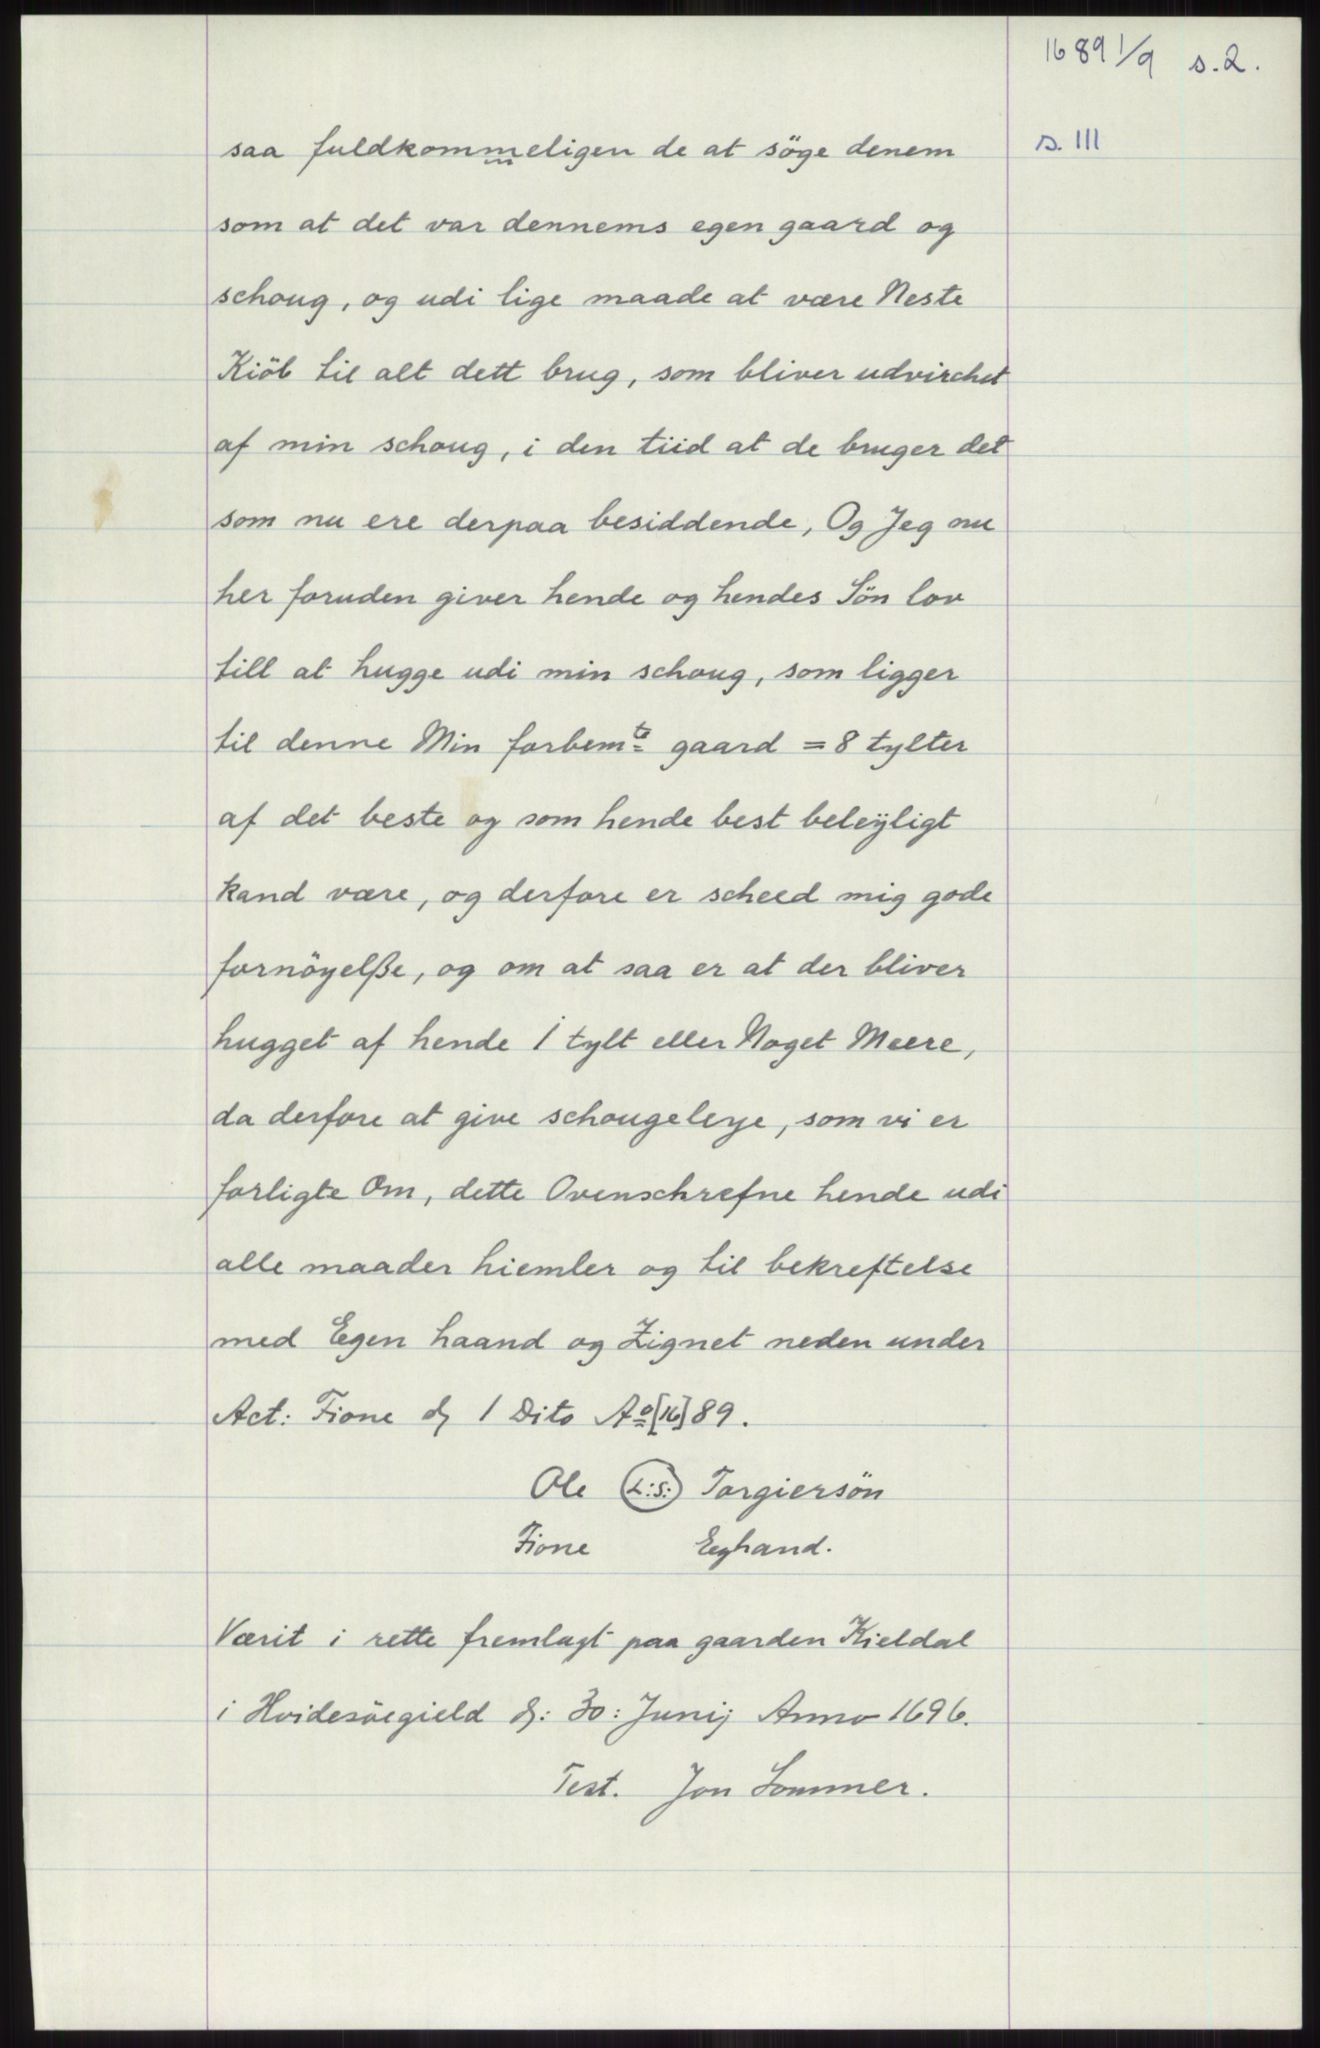 1689 1/9 s. 2.
s. III
saa fuldkommeligen de at söge denem
som at det var dennems egen gaard og
schoug, og udi lige maade at være Neste
Kiöb til alt dett brug, som bliver udvirchet
af min schoug, i den tiid at de bruger det
som nu ere derpaa besiddende, Og Jeg nu
her foruden giver hende og hendes Sön lov
till at hugge udi min schoug, som ligger
til denne Min forbemte gaard = 8 tylter
af det beste og som hende best beleÿligt
kand være, og derfore er scheed mig gode
fornöyelße, og om at saa er at der bliver
hugget af hende 1 tylt eller Noget Meere,
da derfore at give schougeleye, som vi er
forligte Om, dette Ovenschrefne hende udi
alle maader hiemler og til bekreftelse
med Egen haand og Zignet neden under
Act: Fione d 1 Dito Ao [16]89.
Ole L:S: Torgiersön
Fione Eghand.
Værit i rette fremlagt paa gaarden Kieldal
i Hvidesöegield d: 30: Junij Anno 1696.
Test. Jon Sommer.